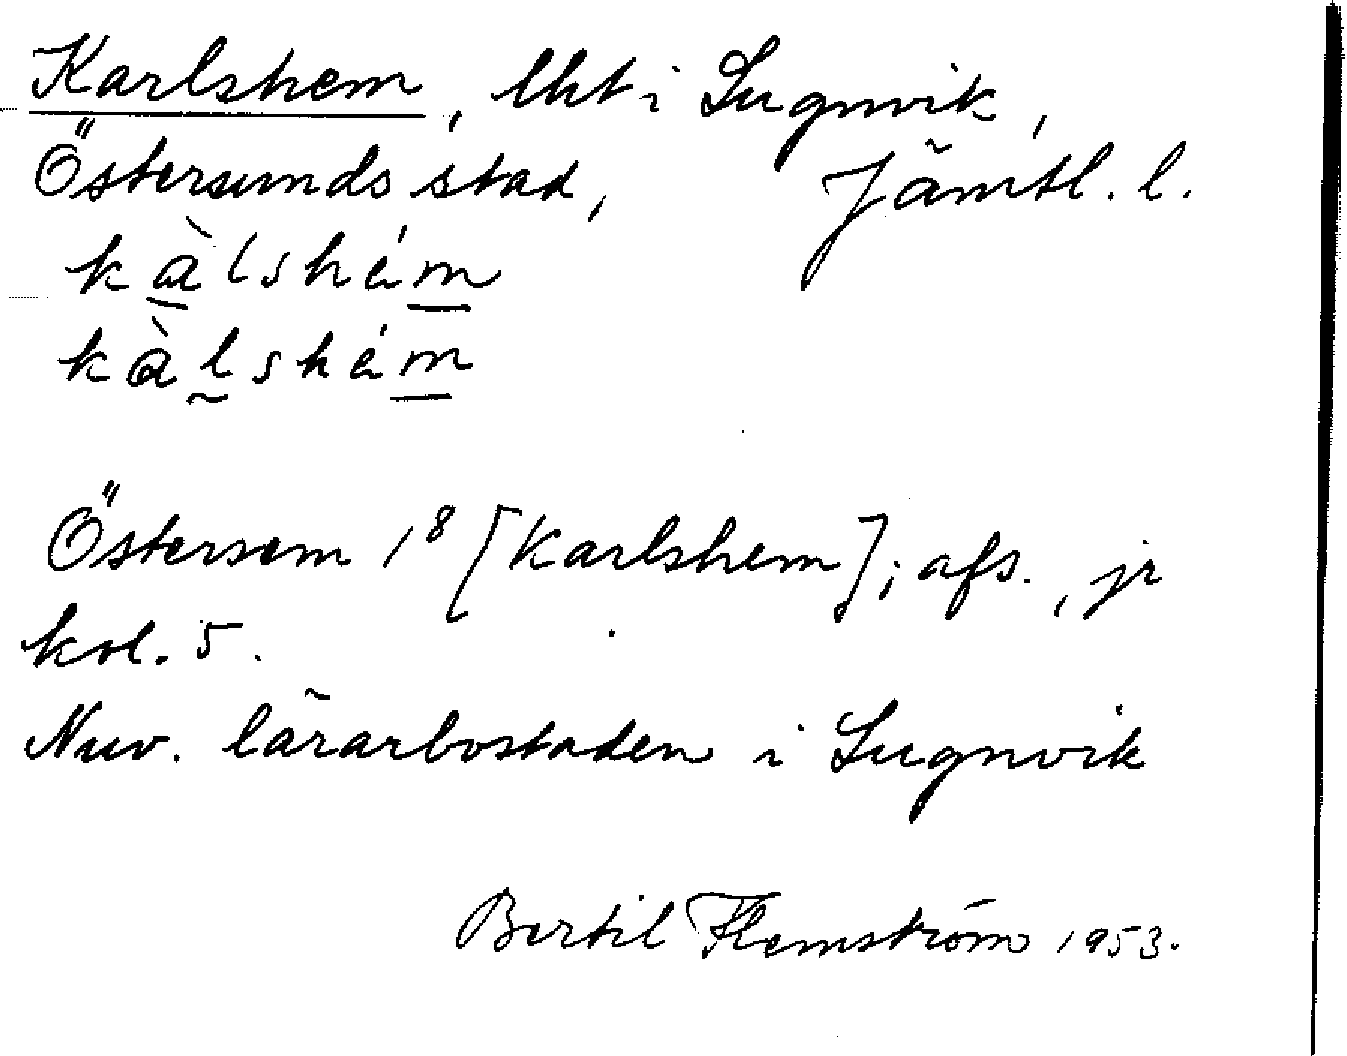 Karlshem, lht i Lugnvik,
Östersunds stad, Jämtl. l.
kàlshém
kàlshém
Östersem 1⁸ [Karlshem]; afs., jr
kol. 5.
Nuv. lärarbostaden i Lugnvik
Bertil Flemström 1953.